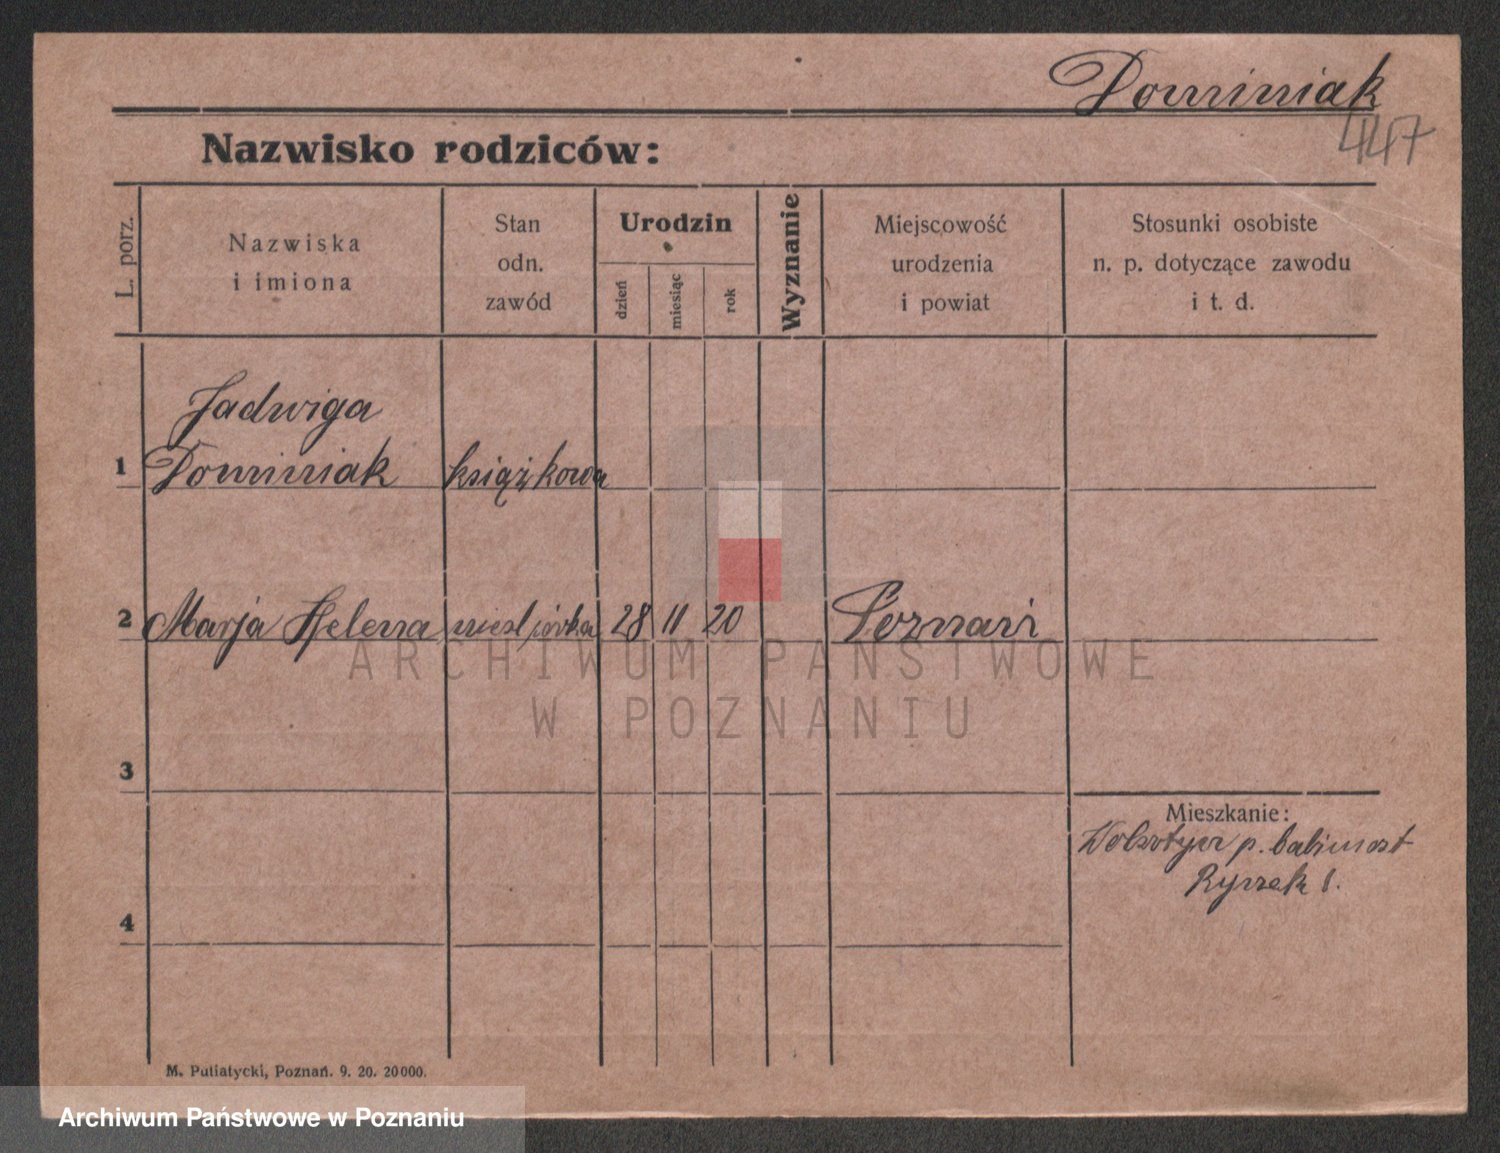 Dominiak
447
Nazwisko rodziców:
L. porz.
Nazwiska
i imiona
Stan
odn.
zawód
Urodzin
dzień
miesiąc
rok
Wyznanie
Miejscowość
urodzenia
i powiat
Stosunki osobiste
n. p. dotyczące zawodu
i t. d.
Jadwiga
1 Dominiak książkowa
2 Marja Helena 28 11 20 Poznań
3
Mieszkanie:
Wolsztyn p. babimost
Rynek 1.
4
M. Putiatycki, Poznań. 9. 20. 20000.
ARCHIWUM PAŃSTWOWE
W POZNANIU
Archiwum Państwowe w Poznaniu